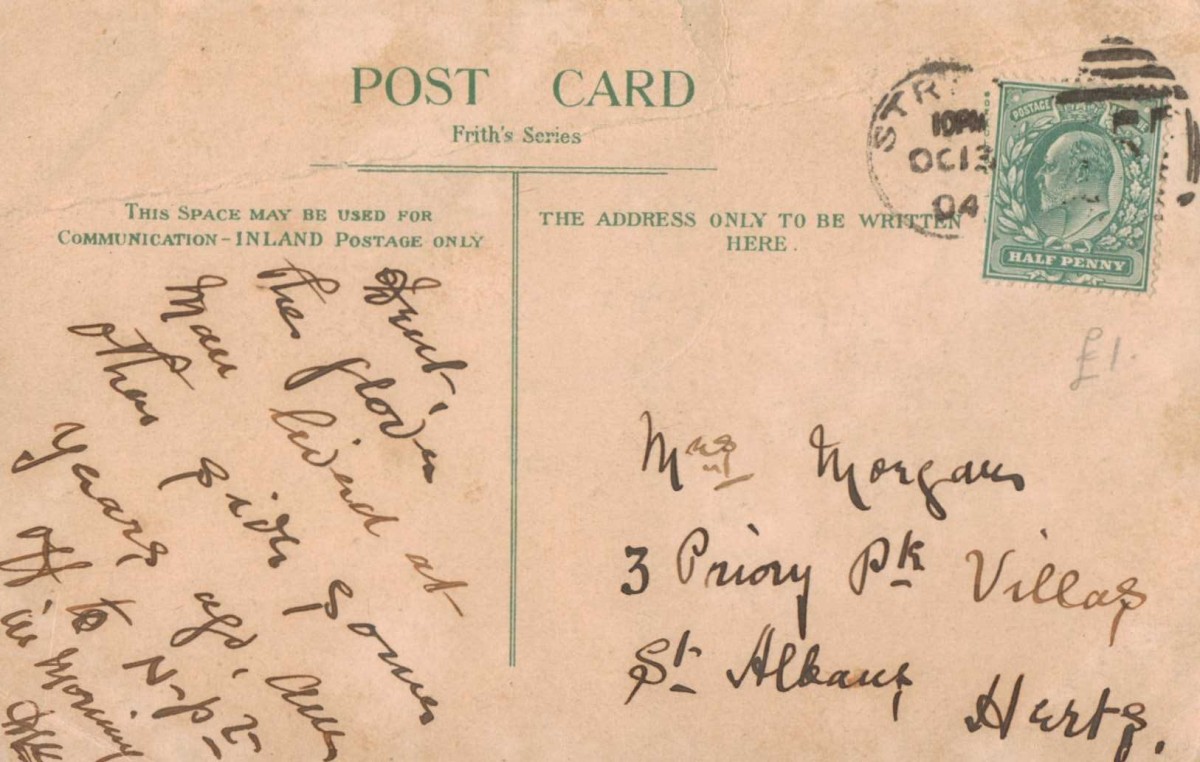 POST CARD
Frith's Series
THIS SPACE MAY BE USED FOR
COMMUNICATION-INLAND POSTAGE ONLY
THE ADDRESS ONLY TO BE WRITTEN
HERE.
10PM
OC 13
04
POSTAGE
HALF PENNY
£1.
the
Man lived at
other side some
years ago, am
off to N-p
in morning
Mrs Morgan
3 Priory Pk Villas
St Albans
Herts.